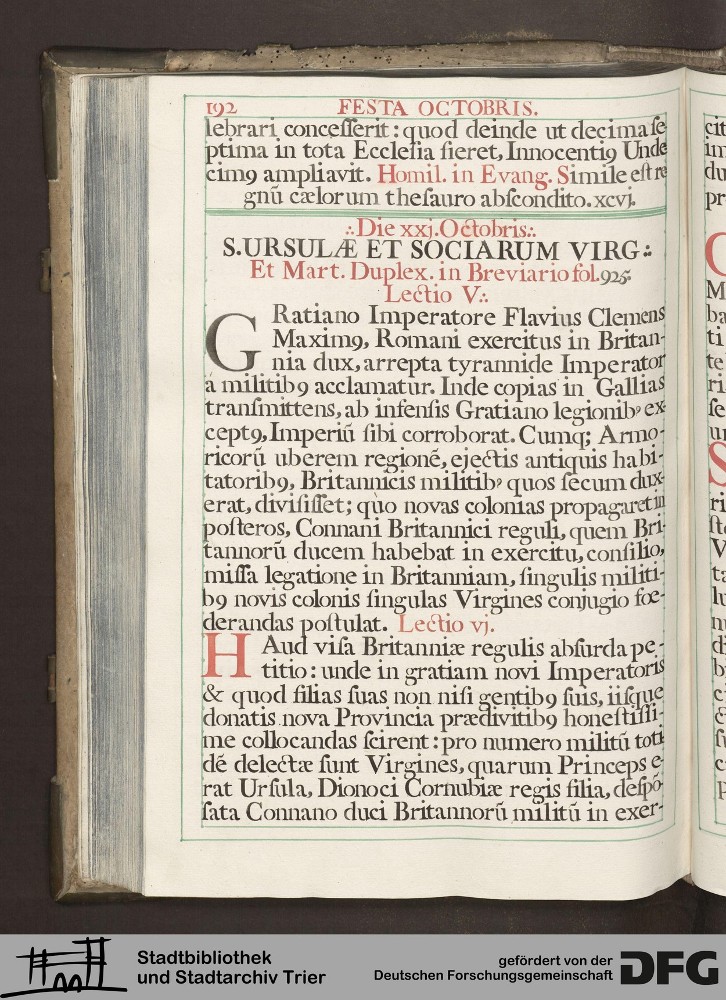 192 FESTA OCTOBRIS.
lebrari conceſſerit: quod deinde ut decima ſe-
ptima in tota Eccleſia fieret, Innocenti9 Unde
cim9 ampliavit. Homil. in Evang. Simile eſt re
gnũ cælorum theſauro abſcondito. xcvj.
∴Die xxj. Octobris∴
S. URSULÆ ET SOCIARUM VIRG∴
Et Mart. Duplex. in Breviario fol. 925.
Lectio V∴
GRatiano Imperatore Flavius Clemens
Maxim9, Romani exercitus in Britan-
nia dux, arrepta tyrannide Imperator
à militib9 acclamatur. Inde copias in Gallias
tranſmittens, ab infenſis Gratiano legionib9 ex-
cept9, Imperiũ ſibi corroborat. Cumq; Armo-
ricorũ uberem regionẽ, ejectis antiquis habi-
tatorib9, Britannicis militib9 quos ſecum dux-
erat, diviſiſſet; quò novas colonias propagaret in
poſteros, Connani Britannici reguli, quem Bri-
tannorũ ducem habebat in exercitu, conſilio,
miſſa legatione in Britanniam, ſingulis militi-
b9 novis colonis ſingulas Virgines conjugio fœ-
derandas poſtulat. Lectio vj.
HAud viſa Britanniæ regulis abſurda pe-
titio: unde in gratiam novi Imperatoris
& quod filias ſuas non niſi gentib9 ſuis, iiſque
donatis nova Provincia prædivitib9 honeſtiſſi-
me collocandas ſcirent: pro numero militũ toti
dẽ delectæ ſunt Virgines, quarum Princeps e-
rat Urſula, Dionoci Cornubiæ regis filia, deſpõ-
ſata Connano duci Britannorũ militũ in exer-
cit
im
du
pr
M
ba
ti
te
ri
ſe
ur
ri
ſte
V
ta
lu
Stadtbibliothek
und Stadtarchiv Trier
gefördert von der
Deutschen Forschungsgemeinschaft
DFG